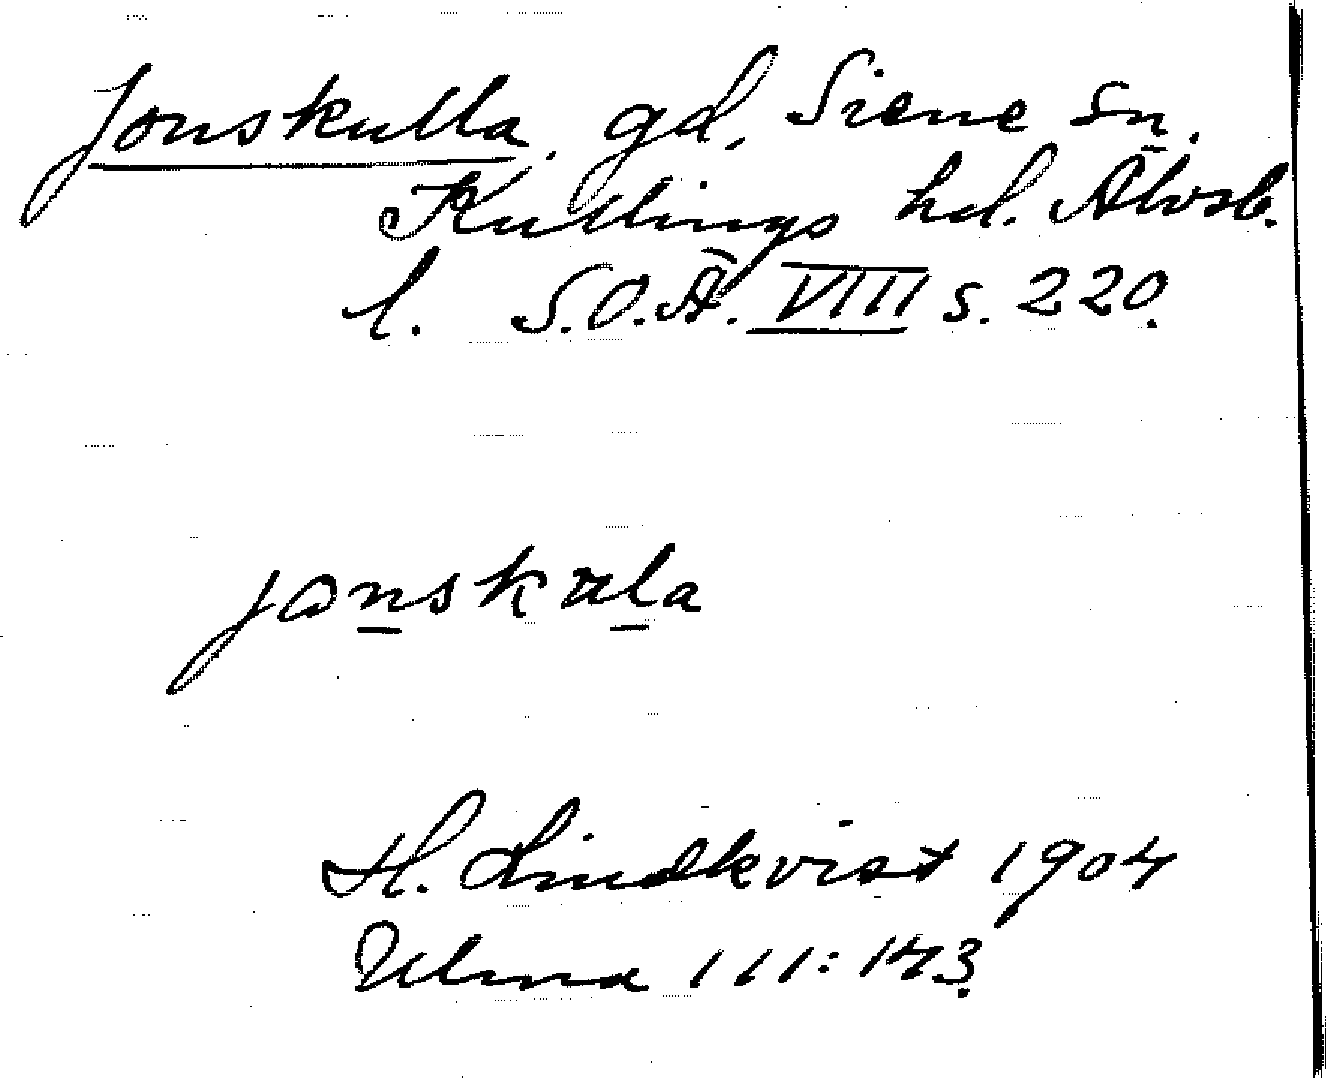 Jonskulla, gd, Siene sn,
Kullings hd. Älvsb.
l. S.O.Ä. VIII s. 220.
H. Lindkvist 1904
Ulma 111:143.